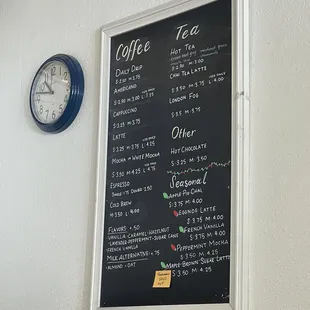 Coffee
Daily Drip
S·2.50 M·3.75
Americano
S·2.90 M·3.00 L·3.75
Cappuccino
S·3.25 M·3.75
Latte
S·3.25 M·3.75 L·4.25
Mocha or White Mocha
S·3.50 M·4.00 L·4.75
Espresso
Cold Brew
M·3.50 L·4.00
Flavors +.50
Vanilla·Caramel·Hazelnut
·Lavender·Peppermint·Sugar Cane
·French Vanilla
Milk Alternative: +.75
·Almond · Oat
Tea
Hot Tea
S·2.50 M·3.00
Chai Tea Latte
S·3.50 M·4.00
London Fog
S·3.25 M·3.75
Other
Hot Chocolate
S·3.00 M·3.50
Seasonal
Apple Pie Chai
S·3.75 M·4.00
Eggnog Latte
S·3.75 M·4.00
French Vanilla
S·3.75 M·4.00
Peppermint Mocha
S·3.50 M·4.25
Maple Brown Sugar Latte
S·3.50 M·4.25